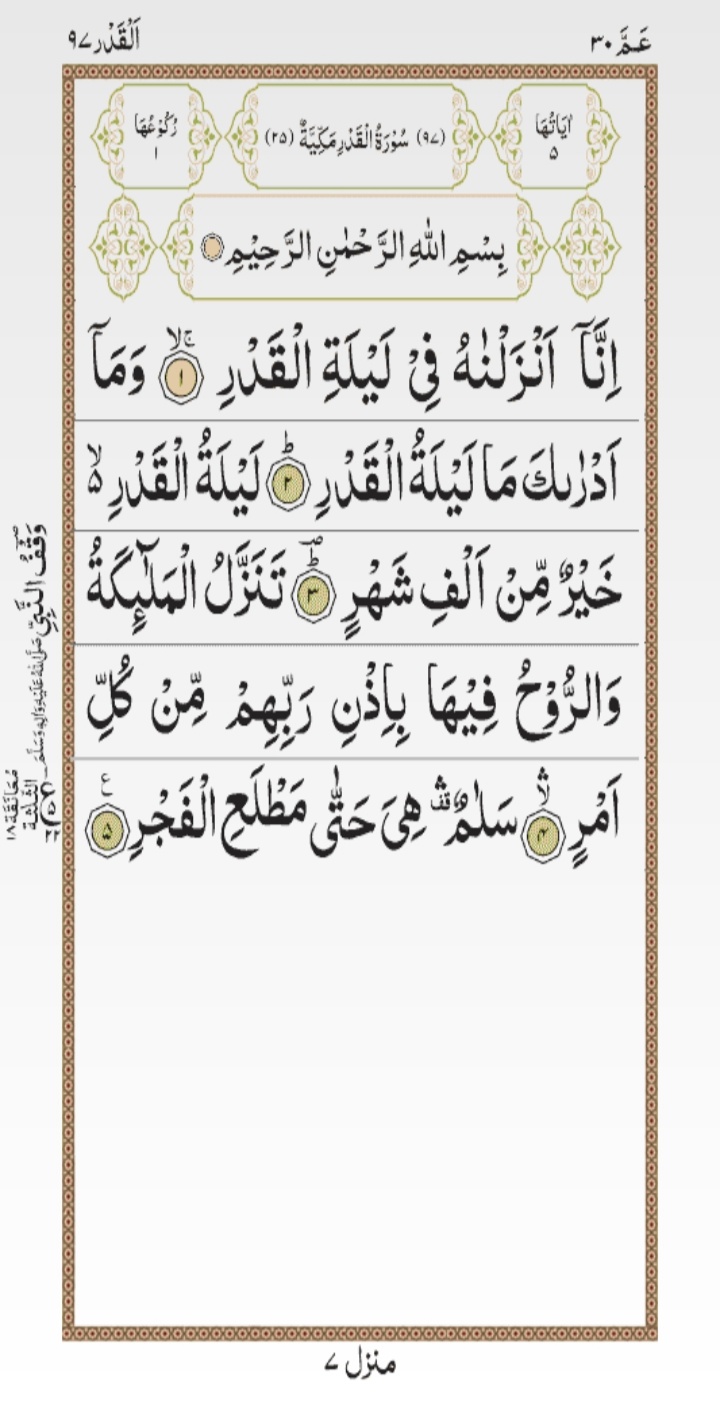 عَمَّ ٣٠
اَلْقَدْر ٩٧
اٰيَاتُهَا ٥
(٩٧) سُوْرَةُ الْقَدْرِ مَكِّيَّةٌ (٢٥)
رُكُوْعُهَا ١
بِسْمِ اللّٰهِ الرَّحْمٰنِ الرَّحِيْمِ
اِنَّاۤ اَنْزَلْنٰهُ فِيْ لَيْلَةِ الْقَدْرِ ۚۖ ١ وَمَاۤ
اَدْرٰىكَ مَا لَيْلَةُ الْقَدْرِ ؕ ٢ لَيْلَةُ الْقَدْرِ ۙ۬
خَيْرٌ مِّنْ اَلْفِ شَهْرٍ ؕؔ ٣ تَنَزَّلُ الْمَلٰٓئِكَةُ
وَالرُّوْحُ فِيْهَا بِاِذْنِ رَبِّهِمْ مِّنْ كُلِّ
اَمْرٍ ۙۛ ٤ سَلٰمٌ ۛ۫ هِيَ حَتّٰى مَطْلَعِ الْفَجْرِ ٥ ع
وَقْفُ النَّبِيِّ صَلَّى اللّٰهُ عَلَيْهِ وَاٰلِهٖ وَسَلَّمَ
مُعَانَقَة ١٨
منزل ٧